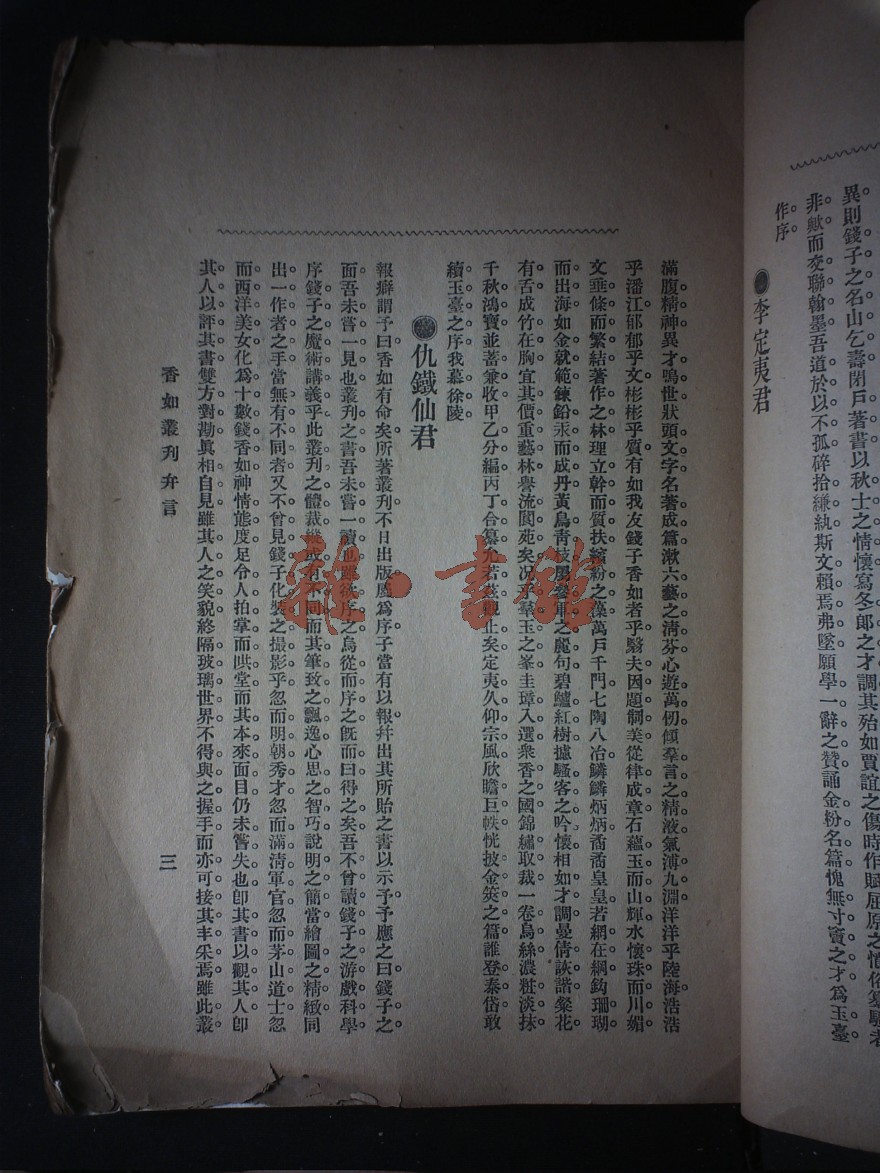 異則錢子之名山乞壽閉戶著書以秋士之情懷寫冬郎之才調其殆如賈誼之傷時作賦屈原之憤俗
非歟而交聯翰墨吾道於以不孤碎拾縑紈斯文賴焉弗墜願學一辭之贊誦金粉名篇愧無寸寶之才爲玉臺
作序
李定夷君
滿腹精神異才鳴世狀頭文字名著成篇漱六藝之清芬心遊萬仞傾羣言之精液氣溥九淵洋洋乎陸海浩浩
乎潘江郁郁乎文彬彬乎質有如我友錢子香如者乎翳夫因題制美從律成章石蘊玉而山輝水懷珠而川媚
文垂條而繁結著作之林理立幹而質扶繽紛之藻萬戶千門七陶八冶鱗鱗炳炳矞矞皇皇若網在綱鈎珊瑚
而出海如金就範鍊鉛汞而成丹黃鳥青枝參軍之麗句碧驢紅樹攄騷客之吟懷相如才調曼倩詼諧粲花
有舌成竹在胸宜其價重藝林譽流閬苑矣況乎羣玉之峯圭璋入選衆香之國錦繡取裁一卷烏絲濃粧淡抹
千秋鴻寶並著兼收甲乙分編丙丁合纂允若茲觀止矣定夷久仰宗風欣瞻巨帙恍披金筴之篇誰登泰岱敢
續玉臺之序我慕徐陵
仇鐵仙君
報癖謂予曰香如有命矣所著叢刊不日出版應爲序子當有以報幷出其所貽之書以示予予應之曰錢子之
而吾未嘗一見也叢刊之書吾未嘗一讀也雖欲序之烏從而序之旣而曰得之矣吾不曾讀錢子之游戲科學
序錢子之魔術講義乎此叢刊之體裁縱或有不同而其筆致之飄逸心思之智巧說明之簡當繪圖之精緻同
出一作者之手當無有不同者又不曾見錢子化裝之撮影乎忽而明朝秀才忽而滿清軍官忽而茅山道士忽
而西洋美女化爲十數錢香如神情態度足令人拍掌而鬨堂而其本來面目仍未嘗失也卽其書以觀其人卽
其人以評其書雙方對勘眞相自見雖其人之笑貌終隔玻璃世界不得與之握手而亦可接其丰采焉雖此叢
香如叢刊弁言
三
龍 書館